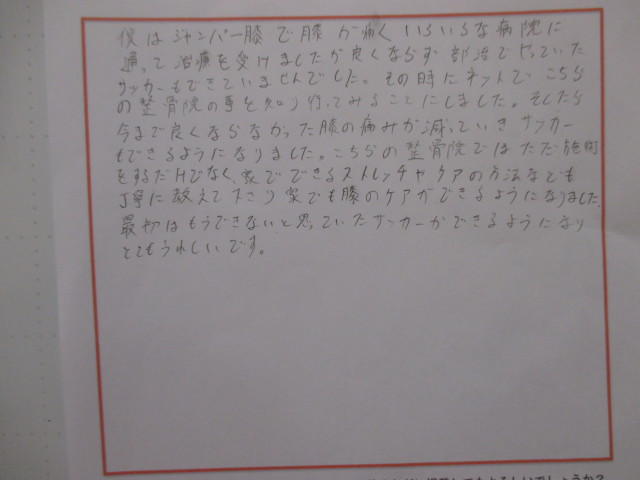 僕はジャンパー膝で膝が痛くいろいろな病院に
通って治療を受けましたが良くならず部活でやっていた
サッカーもできていませんでした。その時にネットでこちら
の整骨院の事を知り行ってみることにしました。そしたら
今まで良くならなかった膝の痛みが減っていきサッカー
もできるようになりました。こちらの整骨院ではただ施術
をするだけでなく、家でできるストレッチやケアの方法なども
丁寧に教えて下さり家でも膝のケアができるようになりました。
最初はもうできないと思っていたサッカーができるようになり
とてもうれしいです。